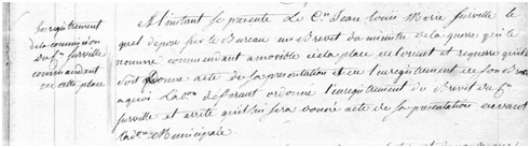 Enregistrement
de la commission
du Cn Surville
commandant
en cette place
A l'instant se présente Le Cn Jean Louis Marie Surville le
quel dépose sur le Bureau un Brevet du ministre de la guerre qui le
nomme commandant amovible de la place de Lorient et requiert qu'il
soit donné acte de sa présentation et de l'enregistrement de son
a quoi L'adon déferant ordonne l'enregistrement du Brevet du Cn
Surville et arrête qu'il lui sera donné acte de sa présentation devant
L'adon Municipale.